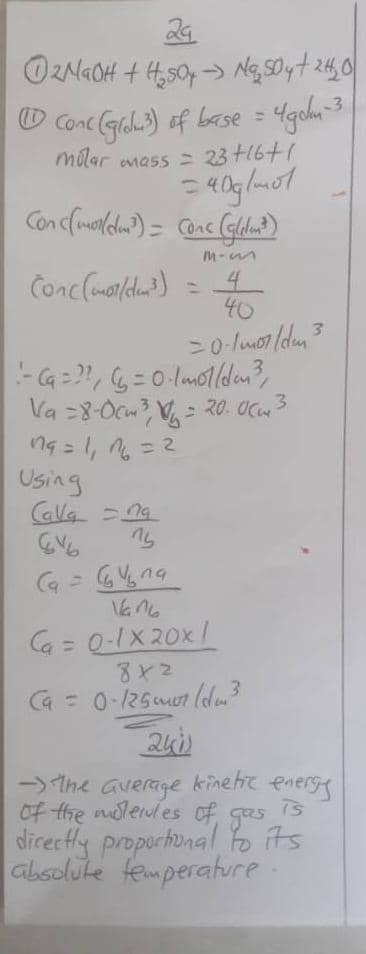 2a
(i) 2NaOH + H₂SO₄ → Na₂SO₄ + 2H₂O
(ii) Conc (g/dm³) of base = 4gdm⁻³
molar mass = 23+16+1
= 40g/mol
Conc(mol/dm³) = Conc (g/dm³)
m.m
Conc(mol/dm³) = 4
40
= 0.1mol/dm³
∴ Ca = ??, Cb = 0.1mol/dm³,
Va = 8.0cm³, Vb = 20.0cm³
na = 1, nb = 2
Using
CaVa = na
CbVb nb
Ca = CbVbna
Vanb
Ca = 0.1 x 20 x 1
8 x 2
Ca = 0.125mol/dm³
2(i)
→ The average kinetic energy
of the molecules of gas is
directly proportional to its
absolute temperature.